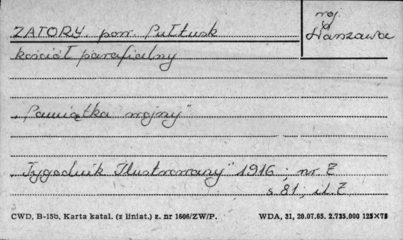 ZATORY, pow. Pułtusk
woj. Warszawa
kościół parafialny
"Pamiątka wojny"
"Tygodnik Ilustrowany" 1916, nr. 7
s. 81, il. 7
CWD, B-15b, Karta katal. (z liniat.) z. nr 1606/ZW/P. WDA, 31, 20.07.65. 2.735.000 125×75